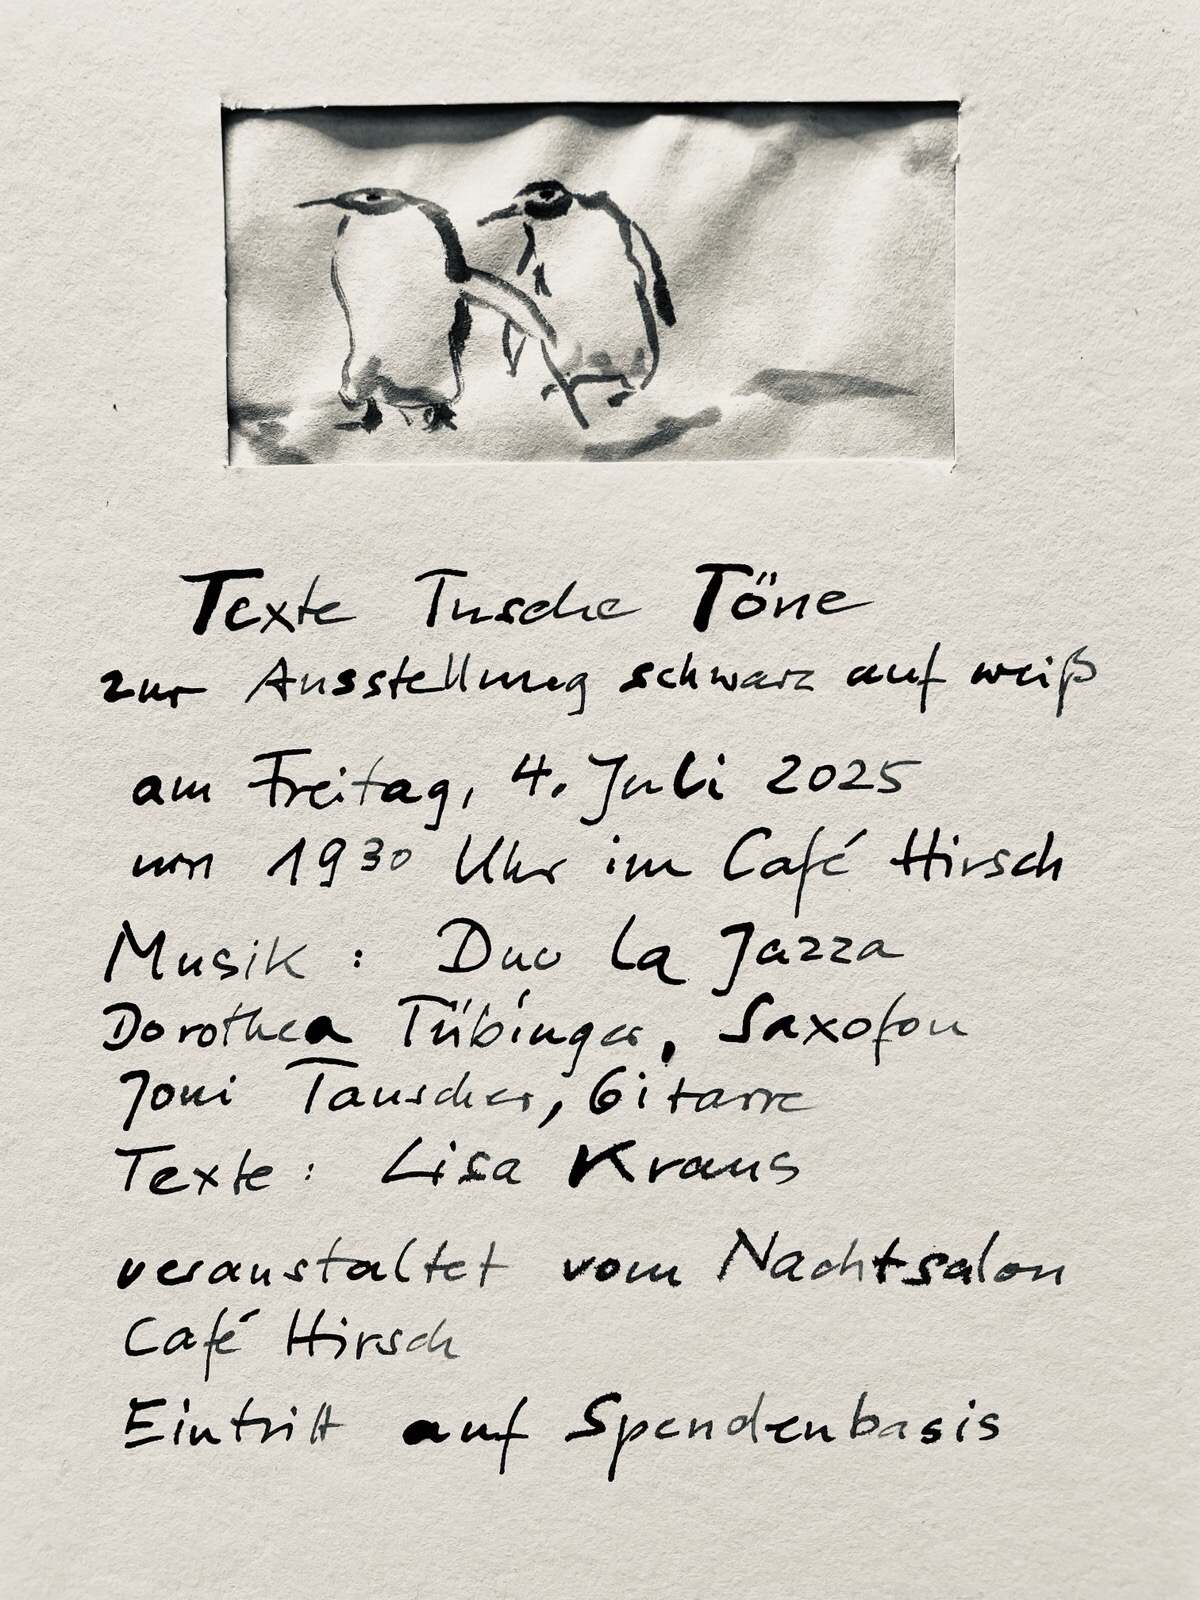 Texte Tusche Töne
zur Ausstellung schwarz auf weiß
am Freitag, 4. Juli 2025
um 19³⁰ Uhr im Café Hirsch
Musik : Duo La Jazza
Dorothea Tübinger, Saxofon
Joni Tauscher, Gitarre
Texte : Lisa Kraus
veranstaltet vom Nachtsalon
Café Hirsch
Eintritt auf Spendenbasis